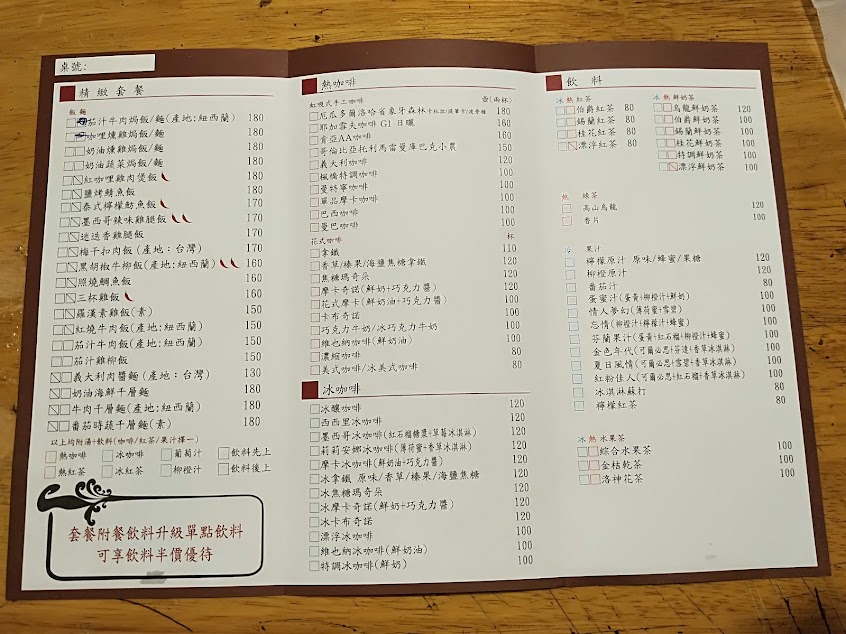 桌號:
精緻套餐
飯 麵
茄汁牛肉焗飯/麵(產地:紐西蘭) 180
咖哩燻雞焗飯/麵 180
奶油燻雞焗飯/麵 180
奶油蔬菜焗飯/麵 180
紅咖哩雞肉煲飯 180
鹽烤鯖魚飯 180
泰式檸檬魴魚飯 170
墨西哥辣味雞腿飯 170
迷迭香雞腿飯 170
梅干扣肉飯(產地:台灣) 170
黑胡椒牛柳飯(產地:紐西蘭) 160
照燒鯛魚飯 160
三杯雞飯 160
羅漢素雞飯(素) 150
紅燒牛肉飯(產地:紐西蘭) 150
茄汁牛肉飯(產地:紐西蘭) 150
茄汁雞柳飯 150
義大利肉醬麵(產地:台灣) 130
奶油海鮮千層麵 180
牛肉千層麵(產地:紐西蘭) 180
番茄時蔬千層麵(素) 180
以上均附湯+飲料(咖啡/紅茶/果汁擇一)
熱咖啡 冰咖啡 葡萄汁 飲料先上
熱紅茶 冰紅茶 柳橙汁 飲料後上
套餐附餐飲料升級單點飲料
可享飲料半價優待
熱咖啡
虹吸式手工咖啡 壺(兩杯)
厄瓜多爾洛哈省象牙森林 180
耶加雪夫咖啡 G1 日曬 160
肯亞AA咖啡 160
哥倫比亞托利馬雷曼庫巴克小農 150
義大利咖啡 120
楓橋特調咖啡 100
曼特寧咖啡 100
單品摩卡咖啡 100
巴西咖啡 100
曼巴咖啡 100
花式咖啡 杯
拿鐵 110
香草/榛果/海鹽焦糖拿鐵 120
焦糖瑪奇朵 120
摩卡奇諾(鮮奶+巧克力醬) 120
花式摩卡(鮮奶油+巧克力醬) 100
卡布奇諾 120
巧克力牛奶/冰巧克力牛奶 100
維也納咖啡(鮮奶油) 100
濃縮咖啡 80
美式咖啡/冰美式咖啡 80
冰咖啡
冰釀咖啡 120
西西里冰咖啡 120
墨西哥冰咖啡(紅石榴糖漿+草莓冰淇淋) 120
莉莉安娜冰咖啡(薄荷蜜+香草冰淇淋) 120
摩卡冰咖啡(鮮奶油+巧克力醬) 120
冰拿鐵 原味/香草/榛果/海鹽焦糖 120
冰焦糖瑪奇朵 120
冰摩卡奇諾(鮮奶+巧克力醬) 120
冰卡布奇諾 120
漂浮冰咖啡 100
維也納冰咖啡(鮮奶油) 100
特調冰咖啡(鮮奶) 100
飲料
冰 熱 紅茶
伯爵紅茶 80
錫蘭紅茶 80
桂花紅茶 80
漂浮紅茶 80
冰 熱 鮮奶茶
烏龍鮮奶茶 120
伯爵鮮奶茶 100
錫蘭鮮奶茶 100
桂花鮮奶茶 100
特調鮮奶茶 100
漂浮鮮奶茶 100
熱 綠茶
高山烏龍 120
香片 100
冷 果汁
檸檬原汁 原味/蜂蜜/果糖 120
柳橙原汁 120
番茄汁 100
蛋蜜汁(蛋黃+柳橙汁+鮮奶) 100
情人夢幻(薄荷蜜+雪碧) 100
忘情(柳橙汁+檸檬汁+蜂蜜) 100
芬蘭果汁(蛋黃+紅石榴+柳橙汁+蜂蜜) 100
金色年代(可爾必思+芬達+香草冰淇淋) 100
夏日風情(可爾必思+雪碧+香草冰淇淋) 100
紅粉佳人(可爾必思+紅石榴+香草冰淇淋) 100
冰淇淋蘇打 80
檸檬紅茶 80
冰 熱 水果茶
綜合水果茶 100
金桔乾茶 100
洛神花茶 100